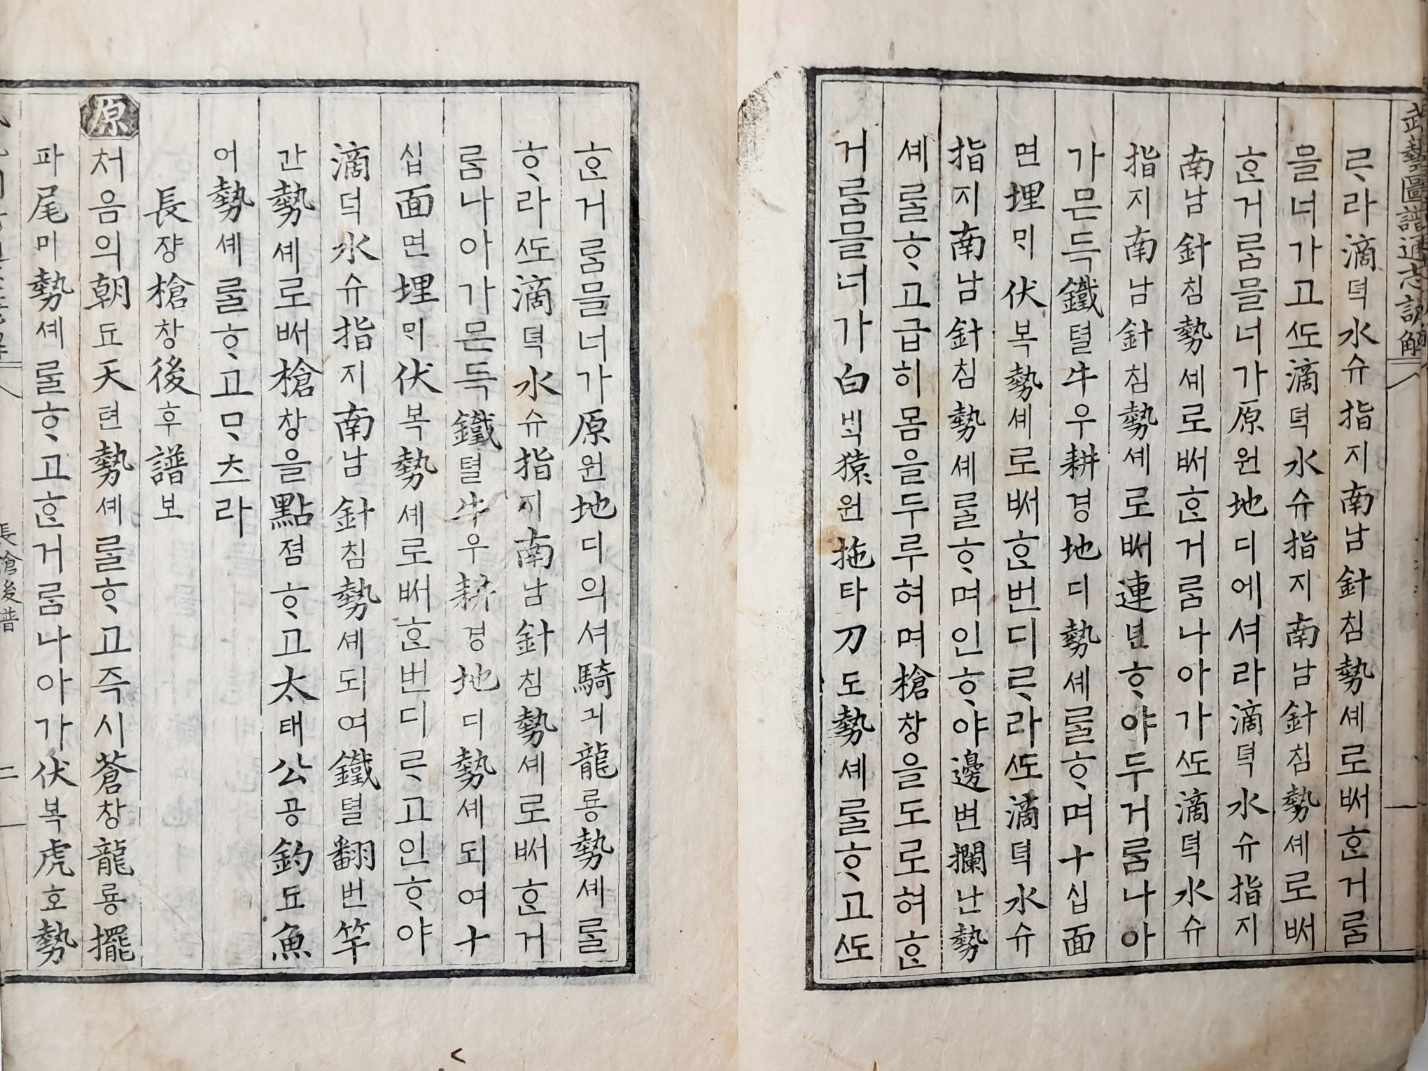 武藝圖譜通志諺解
ᄅᆞ라滴뎍水슈指지南남針침勢셰로ᄡᅥᄒᆞᆫ거룸
믈너가고ᄯᅩ滴뎍水슈指지南남針침勢셰로ᄡᅥ
ᄒᆞᆫ거룸믈너가原원地디에셔라滴뎍水슈指지
南남針침勢셰로ᄡᅥᄒᆞᆫ거룸나아가ᄯᅩ滴뎍水슈
指지南남針침勢셰로ᄡᅥ連년ᄒᆞ야두거룸나아
가믄득鐵텰牛우耕경地디勢셰룰ᄒᆞ며十십面
면埋ᄆᆡ伏복勢셰로ᄡᅥᄒᆞᆫ번디ᄅᆞ라ᄯᅩ滴뎍水슈
指지南남針침勢셰룰ᄒᆞ며인ᄒᆞ야邊변攔난勢
셰룰ᄒᆞ고급히몸을두루혀며槍창을도로혀ᄒᆞᆫ
거룸믈너가白ᄇᆡᆨ猿원拖타刀도勢셰룰ᄒᆞ고ᄯᅩ
ᄒᆞᆫ거룸믈너가原원地디의셔騎긔龍룡勢셰룰
ᄒᆞ라ᄯᅩ滴뎍水슈指지南남針침勢셰로ᄡᅥᄒᆞᆫ거
룸나아가믄득鐵텰牛우耕경地디勢셰되여十
십面면埋ᄆᆡ伏복勢셰로ᄡᅥᄒᆞᆫ번디ᄅᆞ고인ᄒᆞ야
滴뎍水슈指지南남針침勢셰되여鐵텰翻번竿
간勢셰로ᄡᅥ槍창을點졈ᄒᆞ고太태公공釣됴魚
어勢셰룰ᄒᆞ고ᄆᆞᄎᆞ라
長쟝槍창後후譜보
原처음의朝됴天텬勢셰룰ᄒᆞ고즉시蒼창龍룡擺
파尾미勢셰룰ᄒᆞ고ᄒᆞᆫ거룸나아가伏복虎호勢
長槍後譜
二